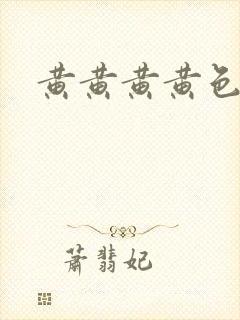 黄黄黄黄色
萧翡妃